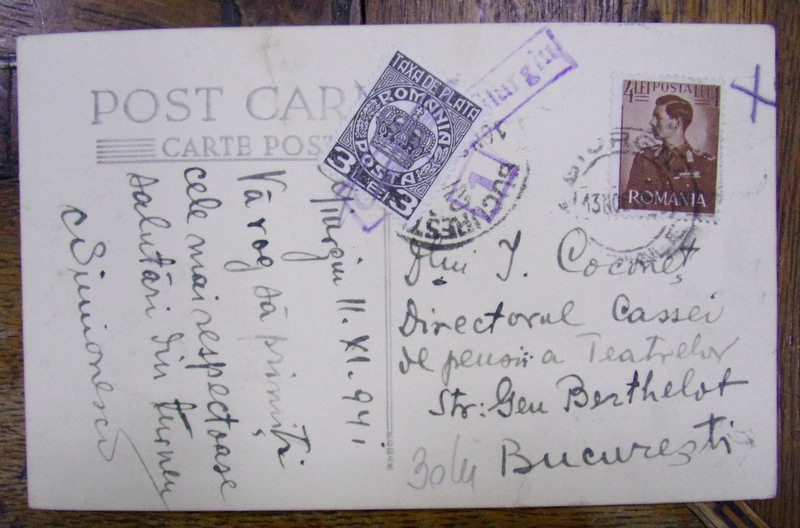 POST CAR
CARTE POST
TAXA DE PLATA
ROMANIA
POSTA
3 LEI 3
Giurgiu
1
BUCUREST
4 LEI POSTA LEI 4
ROMANIA
GIURGIU
13 NO
Giurgiu 11.XI.941
Vă rog să primiți
cele mai respectoase
salutări din turneu
CSimionescu
Dlui I. Coconeț
Directorul Cassei
de pensii a Teatrelor
Str: Gen Berthelot
București
30 lei